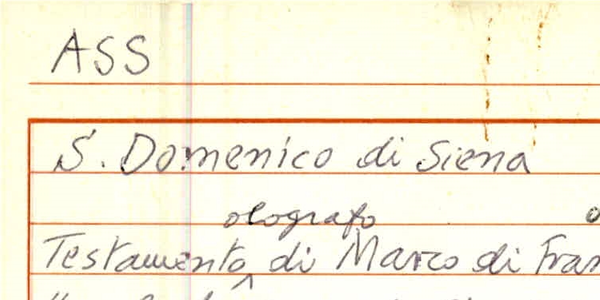 ASS
S. Domenico di Siena
olografo
Testamento di Marco di Fran